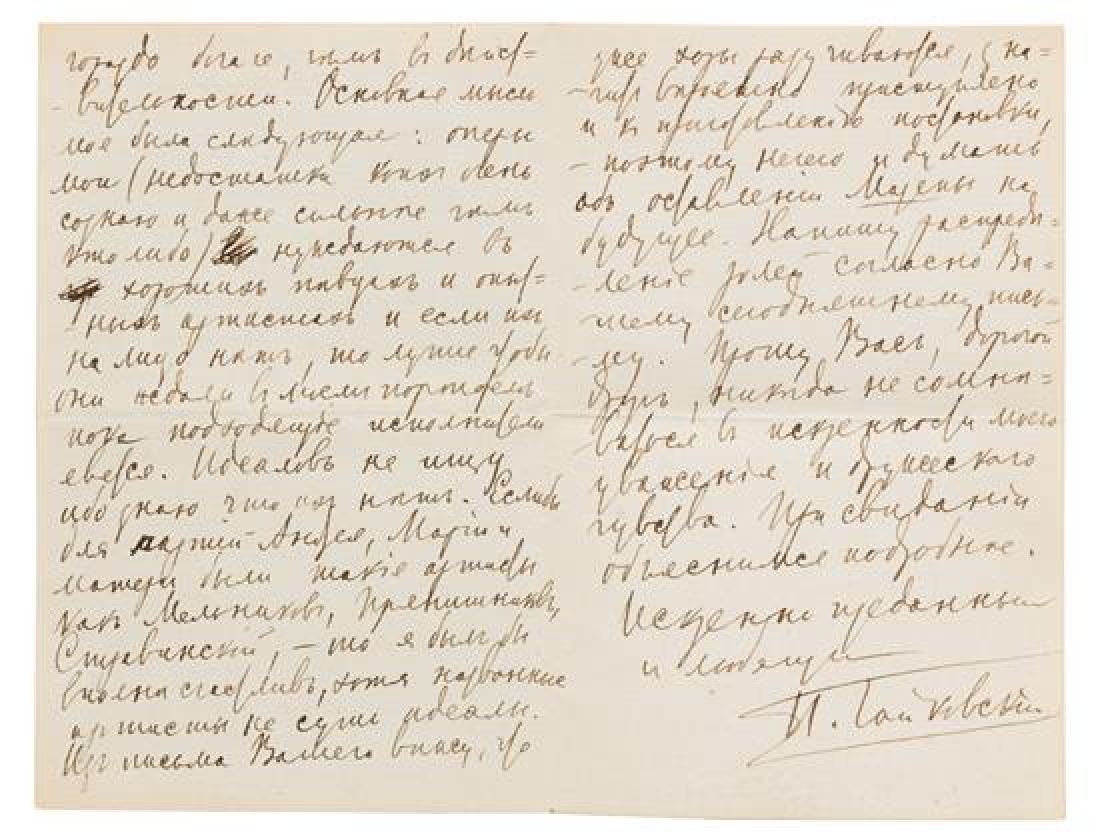 гораздо богаче, чемъ въ дѣйст=
-вительности. Основная мысль
моя была слѣдующая: оперы
мои (недостатки коихъ очень
сознаю и даже сильнѣе чемъ
кто либо) нуждаются въ
хорошихъ пѣвцахъ и опыт=
-ныхъ артистахъ и если ихъ
на лицо нѣтъ, то лучше чтобы
они ждали въ портфелѣ
пока подходящіе исполнители
явятся. Идеаловъ не ищу
ибо знаю что ихъ нѣтъ. Еслибъ
для партій Андрея, Маріи и
матери были такіе артисты
какъ Мельниковъ, Прянишниковъ,
Стравинскій, – то я былъ бы
вполнѣ счастливъ, хотя названные
артисты не суть идеалы.
Изъ письма Вашего вижу, что
уже хоры разучиваются, зна=
-читъ вѣроятно приступлено
и къ приготовленію постановки,
– поэтому нечего и думать
объ оставленіи Мазепы на
будущее. Напишу распредѣ=
-леніе ролей согласно Ва=
-шему сегодняшнему пись=
-му. Прошу Васъ, дорогой
другъ, никогда не сомнѣ=
ваться въ искренности моего
уваженія и дружескаго
чувства. При свиданіи
объяснимся подробнѣе.
Искренно преданный
и любящій
П. Чайковскій